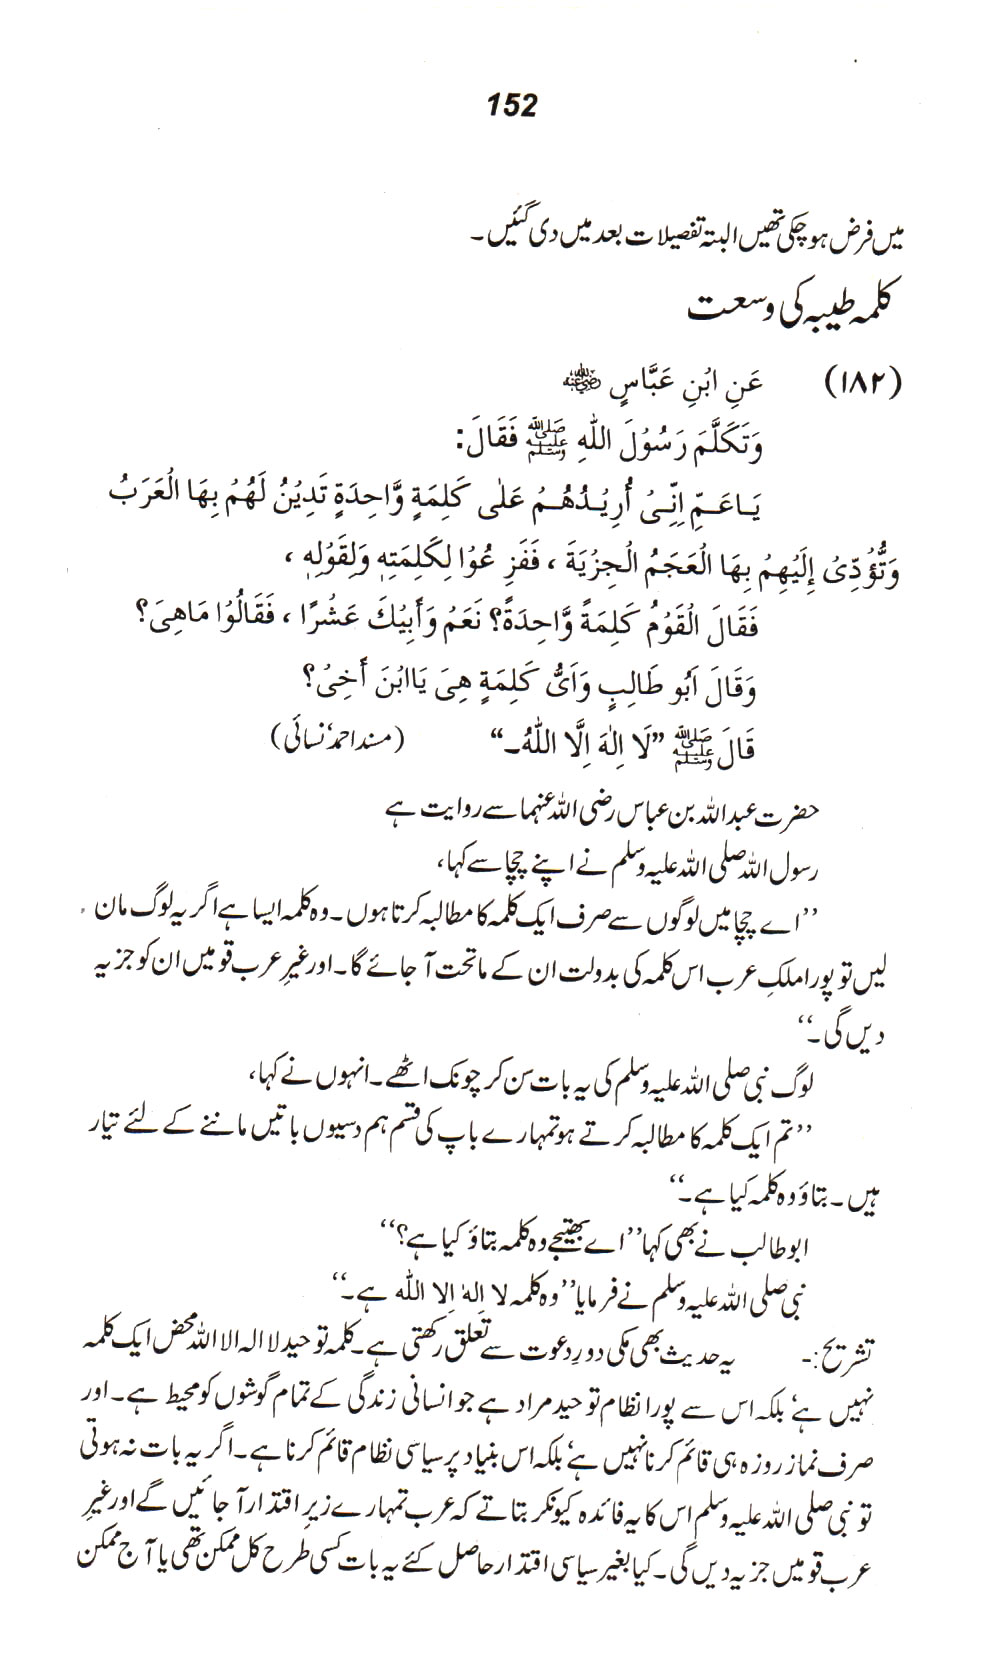 152
میں فرض ہو چکی تھیں البتہ تفصیلات بعد میں دی گئیں۔
کلمہ طیبہ کی وسعت
(۱۸۲) عَنِ ابْنِ عَبَّاسٍ رضی اللہ عنہ
وَتَكَلَّمَ رَسُوْلَ اللهِ ﷺ فَقَالَ:
يَاعَمِّ اِنِّىْ أُرِيْدُهُمْ عَلٰى كَلِمَةٍ وَّاحِدَةٍ تَدِيْنُ لَهُمْ بِهَا الْعَرَبُ
وَتُؤَدِّىْ إِلَيْهِمْ بِهَا الْعَجَمُ الْجِزْيَةَ ، فَفَزِ عُوْا لِكَلِمَتِهٖ وَلِقَوْلِهٖ ،
فَقَالَ الْقَوْمُ كَلِمَةً وَّاحِدَةً؟ نَعَمْ وَأَبِيْكَ عَشْرًا ، فَقَالُوْا مَاهِىَ؟
وَقَالَ اَبُو طَالِبٍ وَاَىُّ كَلِمَةٍ هِىَ يَاابْنَ أَخِىْ؟
قَالَ ﷺ ”لَا اِلٰهَ اِلَّا اللّٰهُ۔“ (مسند احمد‘ نسائی)
حضرت عبداللہ بن عباس رضی اللہ عنہما سے روایت ہے
رسول اللہ صلی اللہ علیہ وسلم نے اپنے چچا سے کہا،
’’اے چچا میں لوگوں سے صرف ایک کلمہ کا مطالبہ کرتا ہوں۔ وہ کلمہ ایسا ہے اگر یہ لوگ مان
لیں تو پورا ملکِ عرب اس کلمہ کی بدولت ان کے ماتحت آ جائے گا۔ اور غیرِ عرب قومیں ان کو جزیہ
دیں گی۔‘‘
لوگ نبی صلی اللہ علیہ وسلم کی یہ بات سن کر چونک اٹھے۔ انہوں نے کہا،
’’تم ایک کلمہ کا مطالبہ کرتے ہو تمہارے باپ کی قسم ہم دسیوں باتیں ماننے کے لئے تیار
ہیں۔ بتاؤ وہ کلمہ کیا ہے۔‘‘
ابو طالب نے بھی کہا ’’اے بھتیجے وہ کلمہ بتاؤ کیا ہے؟‘‘
نبی صلی اللہ علیہ وسلم نے فرمایا ’’وہ کلمہ لا اِلہٰ اِلا اللہ ہے۔‘‘
تشریح:- یہ حدیث بھی مکی دورِ دعوت سے تعلق رکھتی ہے۔ کلمہ توحید لا الہ الا اللہ محض ایک کلمہ
نہیں ہے‘ بلکہ اس سے پورا نظام توحید مراد ہے جو انسانی زندگی کے تمام گوشوں کو محیط ہے۔ اور
صرف نماز روزہ ہی قائم کرنا نہیں ہے‘ بلکہ اس بنیاد پر سیاسی نظام قائم کرنا ہے۔ اگر یہ بات نہ ہوتی
تو نبی صلی اللہ علیہ وسلم اس کا یہ فائدہ کیونکر بتاتے کہ عرب تمہارے زیرِ اقتدار آ جائیں گے اور غیرِ
عرب قومیں جزیہ دیں گی۔ کیا بغیر سیاسی اقتدار حاصل کئے یہ بات کسی طرح کل ممکن تھی یا آج ممکن